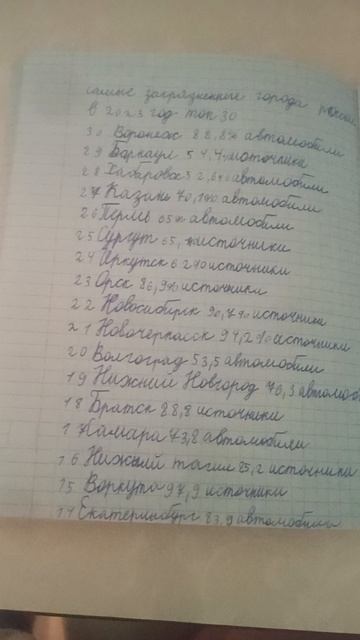 самые загрязненные города России
в 2023 год топ 30
30 Воронеж 88,8% автомобили
29 Барнаул 54,4% источники
28 Хабаровск 52,6% автомобили
27 Казань 70,1% автомобили
26 Пермь 65% автомобили
25 Сургут 65, % источники
24 Иркутск 62% источники
23 Орск 86,9% источники
22 Новосибирск 90,7% источники
21 Новочеркасск 94,2% источники
20 Волгоград 53,5 автомобили
19 Нижний Новгород 76,3 автомоб
18 Братск 88,8 источники
17 Самара 73,8 автомобили
16 Нижный тагил 85,2 источники
15 Воркута 97,9 источники
14 Екатеринбург 83,9 автомобили